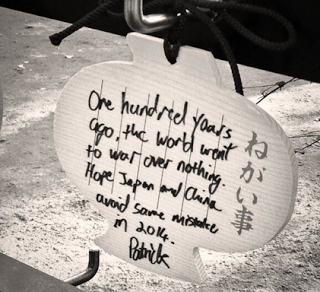 One hundred years
ago, the world went
to war over nothing.
Hope Japan and China
avoid same mistake
in 2014.
Patrick
ねがい事